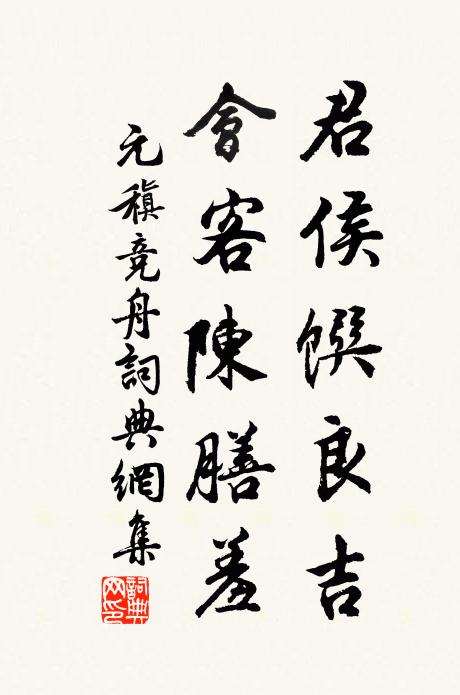 君侯饌良吉
會客陳膳羞
元稹競舟詞典網集
詞典网印